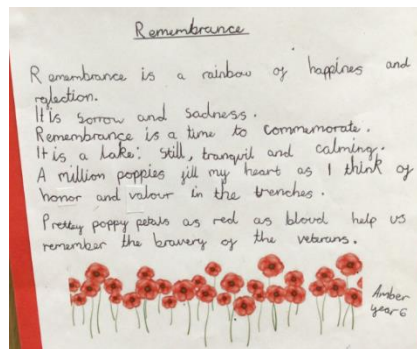 Remembrance
Remembrance is a rainbow of happines and
reflection.
It is sorrow and sadness.
Remembrance is a time to commemorate.
It is a lake: still, tranquil and calming.
A million poppies fill my heart as I think of
honor and valour in the trenches.
Prettey poppy petals as red as bloud help us
remember the bravery of the veterans.
Amber
year 6